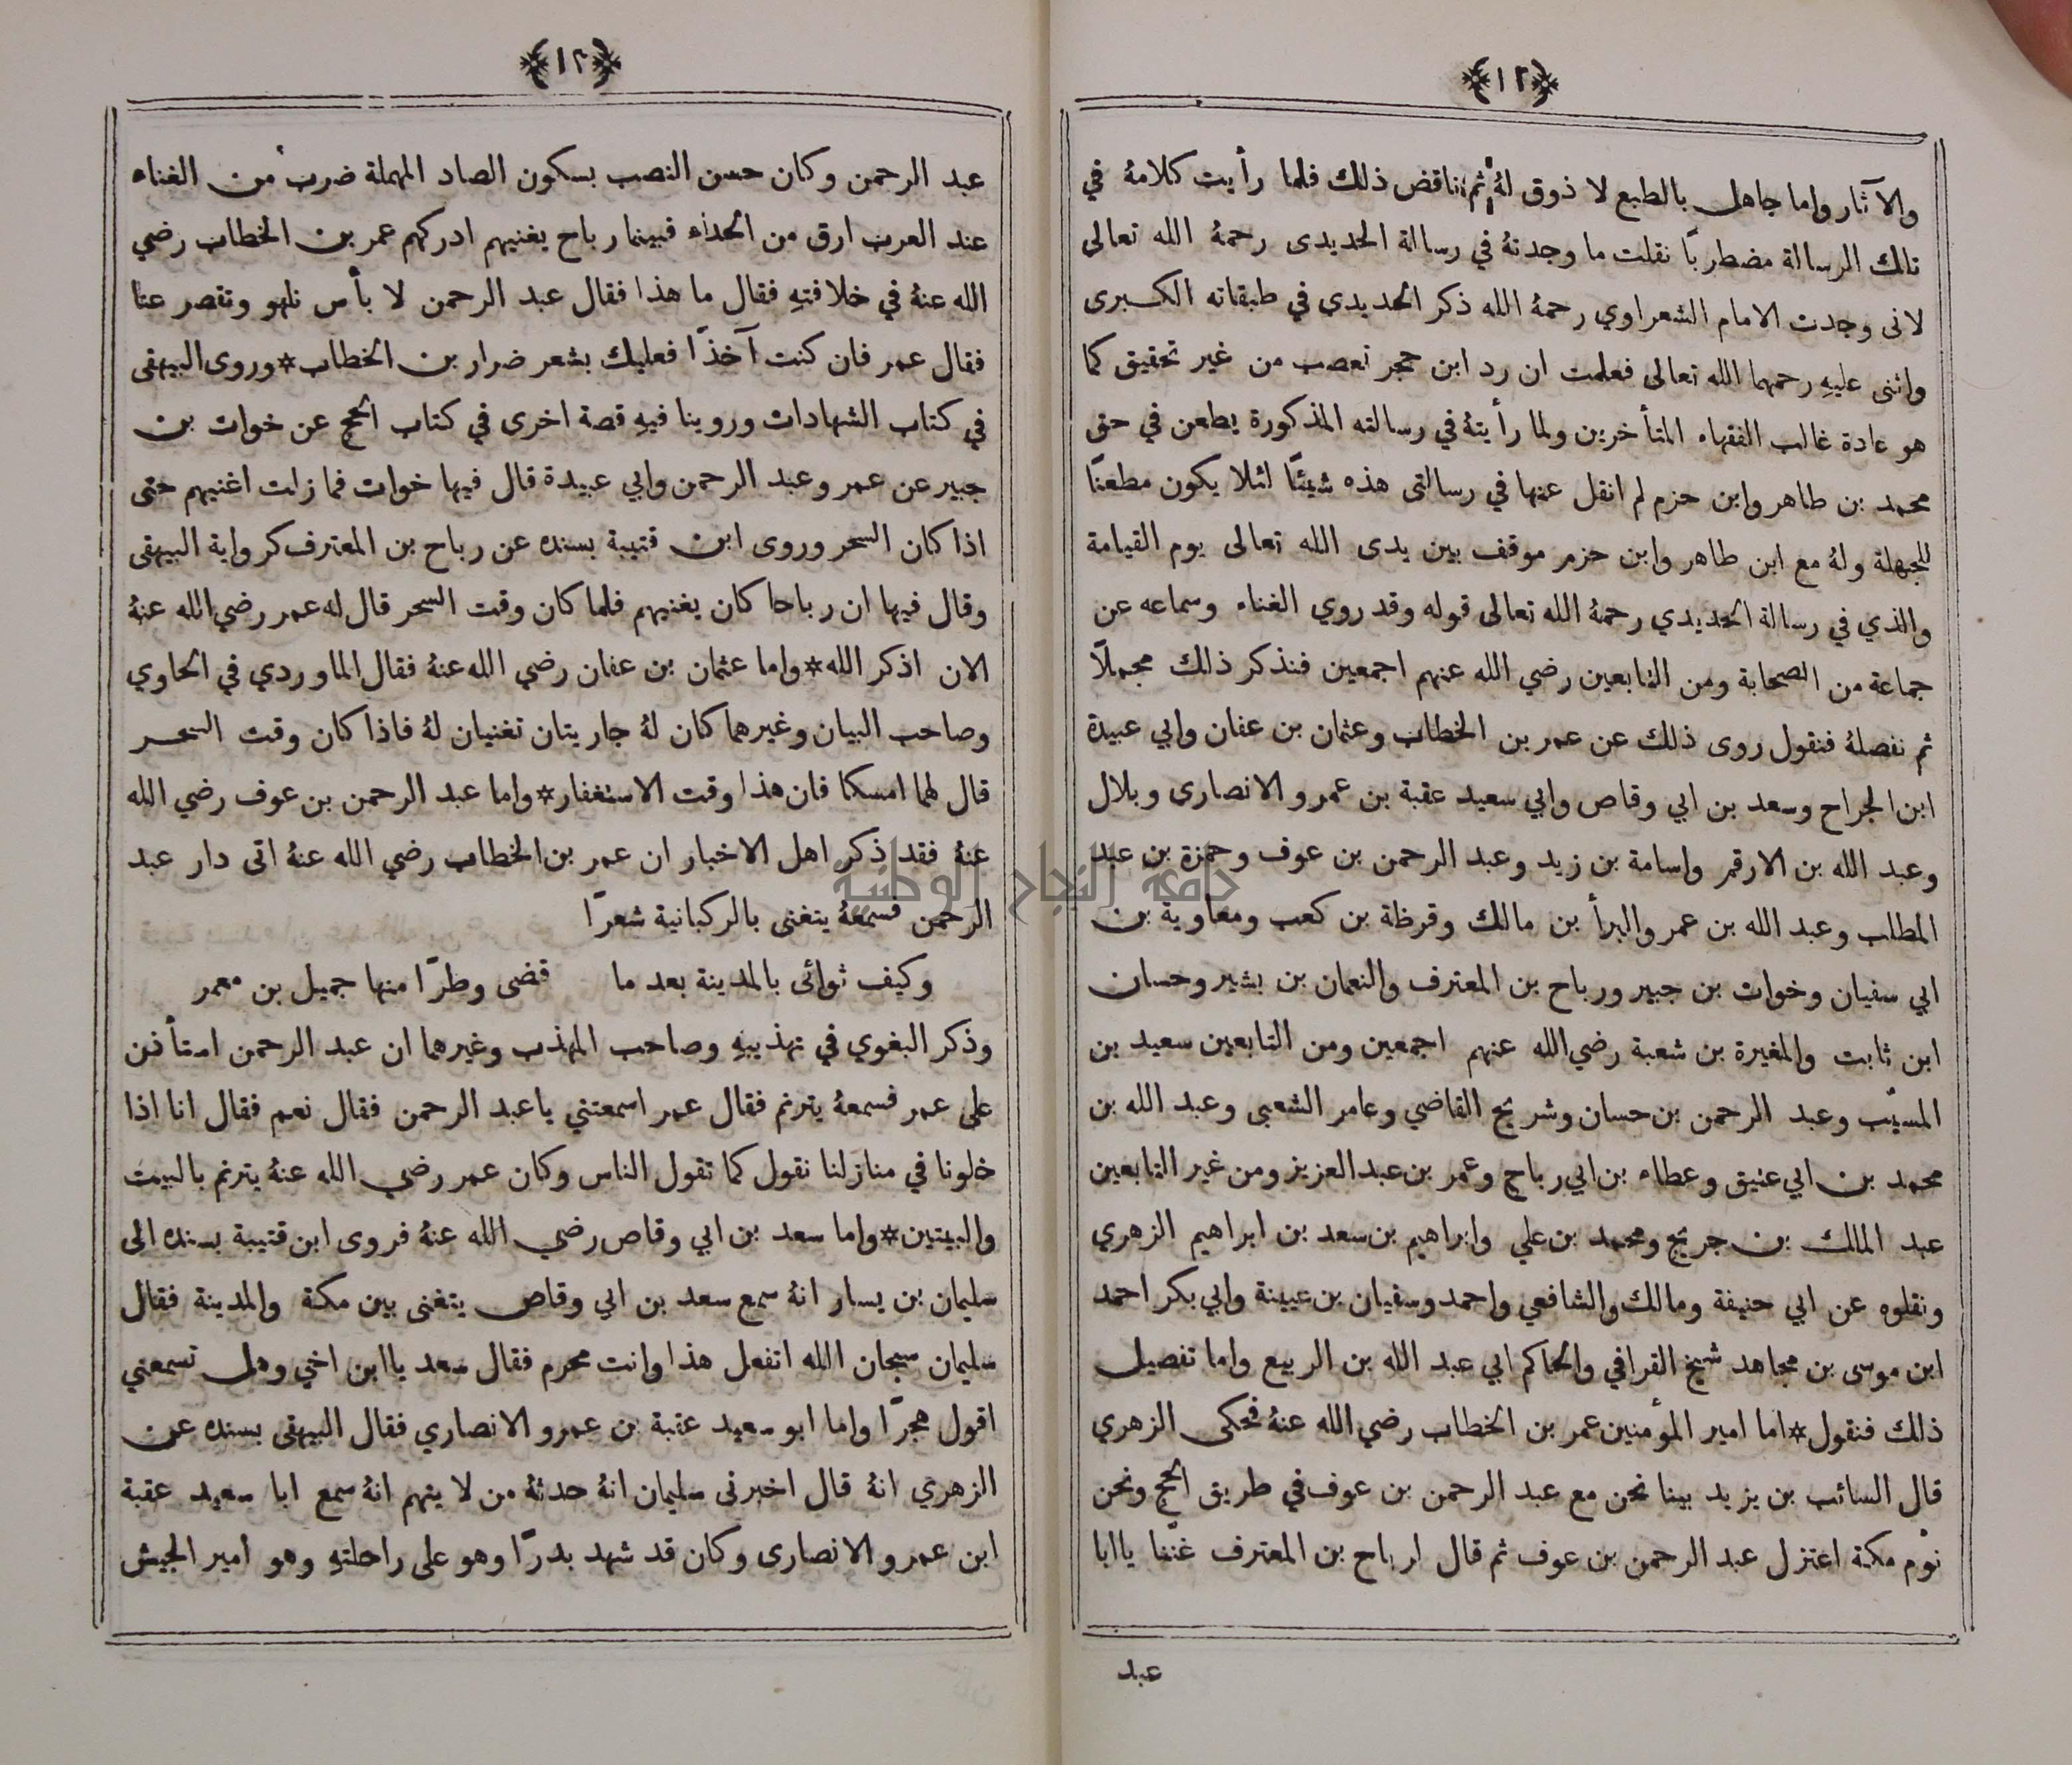 ﴿١٢﴾
والآثار واما جاهل بالطبع لا ذوق لهُ ثم ناقض ذلك فلما رأيت كلامهُ في
تلك الرسالة مضطربًا نقلت ما وجدتهُ في رسالة الحديدى رحمهُ الله تعالى
لانى وجدت الامام الشعراوي رحمهُ الله ذكر الحديدي في طبقاته الكبرى
واثنى عليهِ رحمهما الله تعالى فعلمت ان رد ابن حجر تعصب من غير تحقيق كما
هو عادة غالب الفقهاء المتأخرين ولما رأيتهُ في رسالته المذكورة يطعن في حق
محمد بن طاهر وابن حزم لم انقل عنها في رسالتى هذه شيئًا لئلا يكون مطعنًا
للجهلة ولهُ مع ابن طاهر وابن حزم موقف بين يدى الله تعالى يوم القيامة
والذي في رسالة الحديدي رحمهُ الله تعالى قوله وقد روي الغناء وسماعه عن
جماعة من الصحابة ومن التابعين رضي الله عنهم اجمعين فنذكر ذلك مجملًا
ثم نفصلهُ فنقول روى ذلك عن عمر بن الخطاب وعثمان بن عفان وابي عبيدة
ابن الجراح وسعد بن ابي وقاص وابي سعيد عقبة بن عمرو الانصارى وبلال
وعبد الله بن الارقم واسامة بن زيد وعبد الرحمن بن عوف وحمزة بن عبد
المطلب وعبد الله بن عمر والبرأ بن مالك وقرظة بن كعب ومعاوية بن
ابي سفيان وخوات بن جبير ورباح بن المعترف والنعمان بن بشير وحسان
ابن ثابت والمغيرة بن شعبة رضي الله عنهم اجمعين ومن التابعين سعيد بن
المسيّب وعبد الرحمن بن حسان وشريح القاضي وعامر الشعبى وعبد الله بن
محمد بن ابي عتيق وعطاء بن ابي رباح وعمر بن عبد العزيز ومن غير التابعين
عبد الملك بن جريج ومحمد بن علي وابراهيم بن سعد بن ابراهيم الزهري
ونقلوه عن ابي حنيفة ومالك والشافعي واحمد وسفيان بن عيينة وابي بكر احمد
ابن موسى بن مجاهد شيخ القرافي والحاكم ابي عبد الله بن الربيع واما تفصيل
ذلك فنقول * اما امير المؤمنين عمر بن الخطاب رضي الله عنهُ فحكى الزهري
قال السائب بن يزيد بينا نحن مع عبد الرحمن بن عوف في طريق الحج ونحن
نوٴم مكة اعتزل عبد الرحمن بن عوف ثم قال لرباح بن المعترف غنّنا يا ابا
عبد
﴿١٣﴾
عبد الرحمن وكان حسن النصب بسكون الصاد المهملة ضرب من الغناء
عند العرب ارق من الحداء فبينما رباح يغنيهم ادركهم عمر بن الخطاب رضي
الله عنهُ في خلافتهِ فقال ما هذا فقال عبد الرحمن لا بأس نلهو ونقصر عنا
فقال عمر فان كنت آخذًا فعليك بشعر ضرار بن الخطاب * وروى البيهقى
في كتاب الشهادات وروينا فيهِ قصة اخرى في كتاب الحج عن خوات بن
جبير عن عمر وعبد الرحمن وابي عبيدة قال فيها خوات فما زلت اغنيهم حتى
اذا كان السحر وروى ابن قتيبة بسنده عن رباح بن المعترف كرواية البيهقى
وقال فيها ان رباحا كان يغنيهم فلما كان وقت السحر قال له عمر رضي الله عنهُ
الان اذكر الله * واما عثمان بن عفان رضي الله عنهُ فقال الماوردي في الحاوي
وصاحب البيان وغيرهما كان لهُ جاريتان تغنيان لهُ فاذا كان وقت السحر
قال لهما امسكا فان هذا وقت الاستغفار * واما عبد الرحمن بن عوف رضي الله
عنهُ فقد ذكر اهل الاخبار ان عمر بن الخطاب رضي الله عنهُ اتى دار عبد
الرحمن فسمعهُ يتغنى بالركبانية شعرًا
وكيف ثوائى بالمدينة بعد ما قضى وطرًا منها جميل بن معمر
وذكر البغوي في تهذيبهِ وصاحب المهذب وغيرهما ان عبد الرحمن استأذن
على عمر فسمعهُ يترنم فقال عمر اسمعتني يا عبد الرحمن فقال نعم فقال انا اذا
خلونا في منازلنا نقول كما تقول الناس وكان عمر رضي الله عنهُ يترنم بالبيت
والبيتين * واما سعد بن ابي وقاص رضي الله عنهُ فروى ابن قتيبة بسنده الى
سليمان بن يسار انهُ سمع سعد بن ابي وقاص يتغنى بين مكة والمدينة فقال
سليمان سبحان الله اتفعل هذا وانت محرم فقال سعد يا ابن اخي وهل تسمعني
اقول هجرًا واما ابو سعيد عقبة بن عمرو الانصاري فقال البيهقى بسنده عن
الزهري انهُ قال اخبرنى سليمان انهُ حدثهُ من لا يتهم انهُ سمع ابا سعيد عقبة
ابن عمرو الانصارى وكان قد شهد بدرًا وهو على راحلتهِ وهو امير الجيش
جامعة النجاح الوطنية